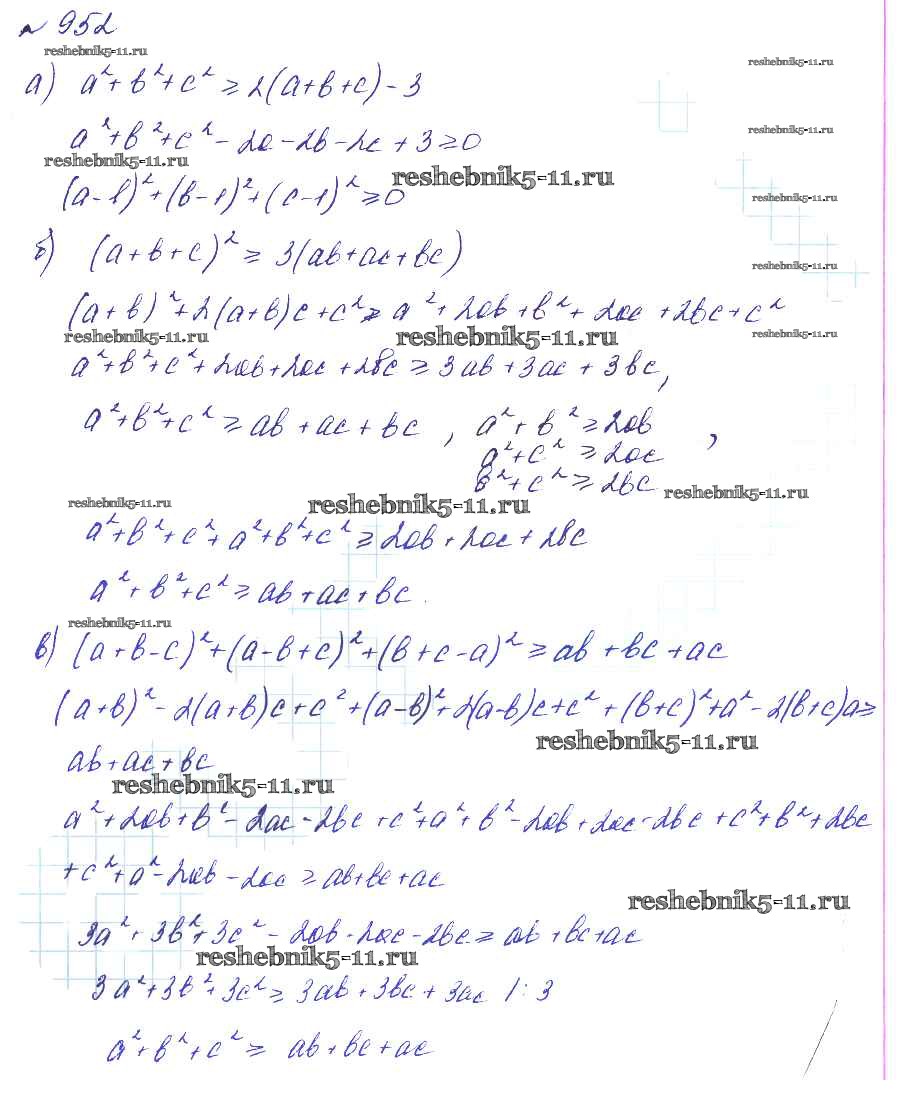 № 952
reshebnik5-11.ru
reshebnik5-11.ru
а) a²+b²+c² ≥ 2(a+b+c)-3
reshebnik5-11.ru
a²+b²+c²-2a-2b-2c+3≥0
reshebnik5-11.ru
reshebnik5-11.ru
reshebnik5-11.ru
(a-1)²+(b-1)²+(c-1)²≥0
б) (a+b+c)² ≥ 3(ab+ac+bc)
reshebnik5-11.ru
(a+b)²+2(a+b)c+c²≥a²+2ab+b²+2ac+2bc+c²
reshebnik5-11.ru
reshebnik5-11.ru
reshebnik5-11.ru
a²+b²+c²+2ab+2ac+2bc ≥ 3ab+3ac+3bc,
a²+b²+c² ≥ ab+ac+bc, a²+b² ≥ 2ab,
a²+c² ≥ 2ac
b²+c² ≥ 2bc
reshebnik5-11.ru
reshebnik5-11.ru
reshebnik5-11.ru
a²+b²+c²+a²+b²+c² ≥ 2ab+2ac+2bc
a²+b²+c² ≥ ab+ac+bc.
reshebnik5-11.ru
в) (a+b-c)²+(a-b+c)²+(b+c-a)² ≥ ab+bc+ac
(a+b)²-2(a+b)c+c²+(a-b)²+2(a-b)c+c²+(b+c)²+a²-2(b+c)a≥
reshebnik5-11.ru
ab+ac+bc
reshebnik5-11.ru
a²+2ab+b²-2ac-2bc+c²+a²+b²-2ab+2ac-2bc+c²+b²+2bc
+c²+a²-2ab-2ac ≥ ab+bc+ac
reshebnik5-11.ru
3a²+3b²+3c²-2ab-2ac-2bc ≥ ab+bc+ac
reshebnik5-11.ru
3a²+3b²+3c² ≥ 3ab+3bc+3ac |:3
a²+b²+c² ≥ ab+bc+ac